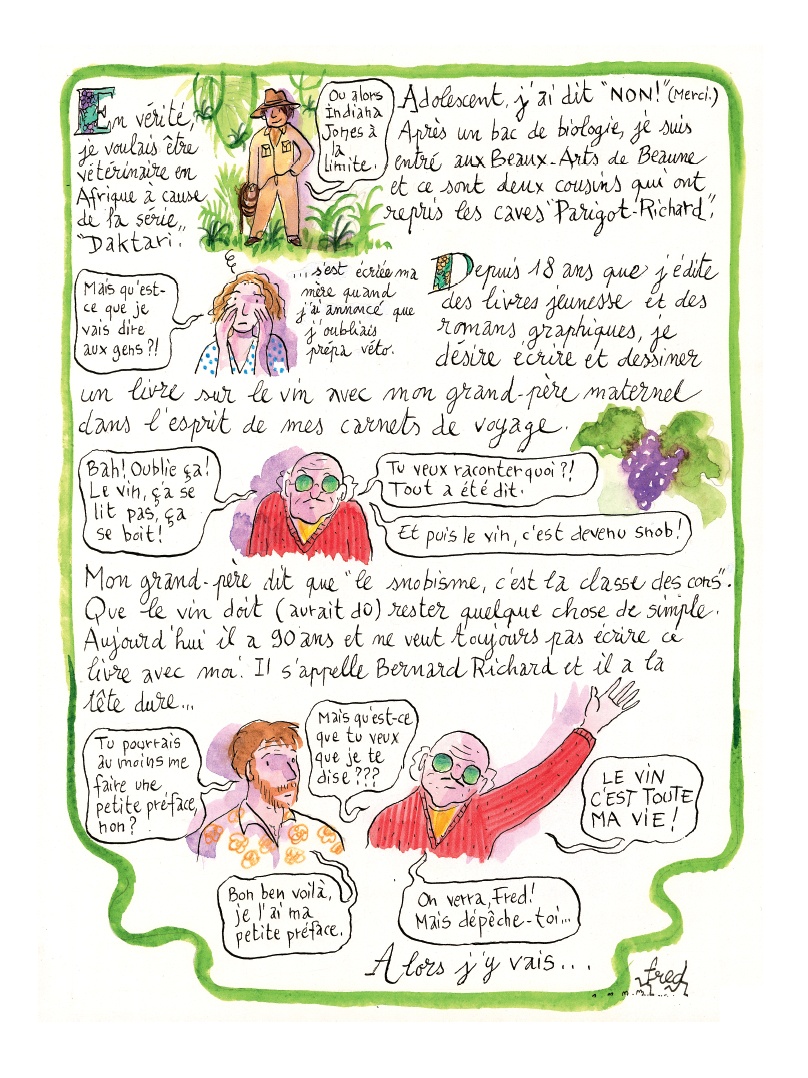 En vérité,
je voulais être
vétérinaire en
Afrique à cause
de la série,,
"Daktari".
Ou alors
Indiana
Jones à
la
limite.
Adolescent, j'ai dit "NON!" (Merci.)
Après un bac de biologie, je suis
entré aux Beaux-Arts de Beaune
et ce sont deux cousins qui ont
repris les caves "Parigot-Richard".
Mais qu'est-
ce que je
vais dire
aux gens?!
... s'est écriée ma
mère quand
j'ai annoncé que
j'oubliais
prépa véto.
Depuis 18 ans que j'édite
des livres jeunesse et des
romans graphiques, je
désire écrire et dessiner
un livre sur le vin avec mon grand-père maternel
dans l'esprit de mes carnets de voyage.
Bah! Oublie ça!
Le vin, ça se
lit pas, ça
se boit!
Tu veux raconter quoi?!
Tout a été dit.
Et puis le vin, c'est devenu snob!
Mon grand-père dit que "le snobisme, c'est la classe des cons".
Que le vin doit (aurait dû) rester quelque chose de simple.
Aujourd'hui il a 90 ans et ne veut toujours pas écrire ce
livre avec moi. Il s'appelle Bernard Richard et il a la
tête dure...
Tu pourrais
au moins me
faire une
petite préface,
non?
Mais qu'est-ce
que tu veux
que je te
dise???
LE VIN
C'EST TOUTE
MA VIE!
Bon ben voilà,
je l'ai ma
petite préface.
On verra, Fred!
Mais dépêche-toi...
Alors j'y vais...
fred